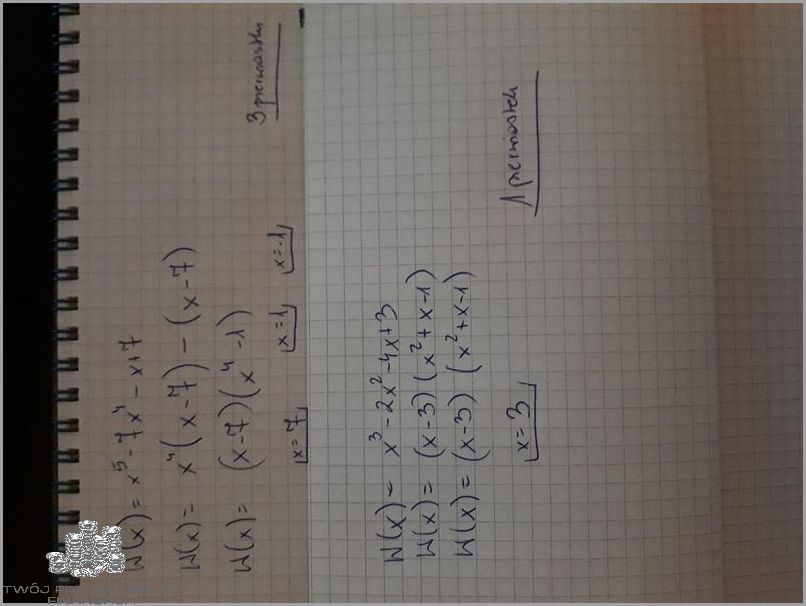 W(x) = x⁵ - 7x⁴ - x + 7
W(x) = x⁴(x-7) - (x-7)
W(x) = (x-7)(x⁴-1)
x=7 x=1 x=-1 3 pierwiastki
W(x) = x³ - 2x² - 4x + 3
W(x) = (x-3)(x²+x-1)
W(x) = (x-3)(x²+x-1)
x=3 1 pierwiastek
TWÓJ